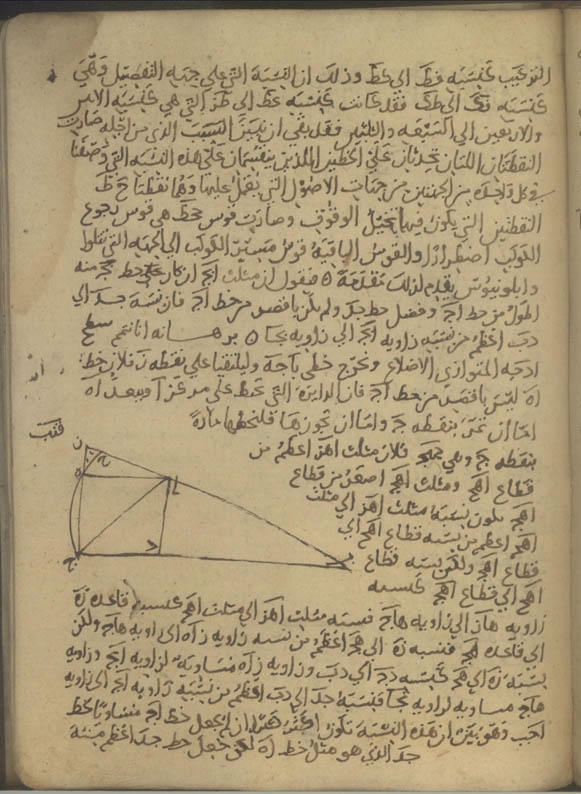 التركيب كنسبة فط الى حط وذلك ان النسبة التي على جهة التفصيل وهي
كنسبة الى طك فقد كانت كنسبة عط الى طز التي هي كنسبة
والاربعين الى السبعة والثلثين فقد بقي ان نبين السبب الذي من اجله صارت
النقطتان اللتان تحدثان على الخطين اللذين ينقسمان على هذه النسبة التي وصفنا
في كل واحدة من الجهتين من جهات الاصول التي يعمل عليها وهما نقطتا ح ط
النقطتين التي يكون فيها تخيل الوقوف وصارت قوس محيط هي قوس رجوع
الكوكب اضطرارا والقوس الباقية قوس مسير الكوكب الى الجهة التي تتلوا
وابلونيوس يقدم لذلك مقدمة فنقول ان مثلث ابج ان كان خط بج منه
اطول من خط اج وفصل خط جد ولم يكن بانقص من خط اج فان نسبة جد الى
دب اعظم من نسبة زاوية ابج الى زاوية بجا برهانه انا نتمم سطح
ادجه المتوازي الاضلاع ونخرج خطي با جه وليلتقيا على نقطة ز فلان خط
اه ليس بانقص من خط اج فان الدايرة التي تخط على مركز ا وببعد اه
اما ان تمر بنقطة ج واما ان تجوزها فلنخطها مارة
بنقطة ج وهي فلان مثلث اهز اعظم من
قطاع اهح ومثلث اهج اصغر من قطاع
اهج تكون نسبة مثلث اهز الى مثلث
اهج اعظم من نسبة قطاع اهح الى
قطاع اهج ولكن نسبة قطاع
اهح الى قطاع اهج كنسبة
زاوية هاز الى زاوية هاج فنسبة مثلث اهز الى مثلث اهج كنسبة قاعدة زه
الى قاعدة هج فنسبة زه الى هج اعظم من نسبة زاوية زاه الى زاوية هاج ولكن
نسبة زه الى هج كنسبة دج الى دب وزاوية زاه مساوية لزاوية ابج وزاوية
هاج مساوية لزاوية بجا فنسبة جد الى دب اعظم من نسبة زاوية ابج الى زاوية
اجب وهو بين ان هذه النسبة تكون اكثر ان لم نجعل خط اج مساويا لخط
جد الذي هو مثل خط اه لكن جعل خط جد اعظم منه